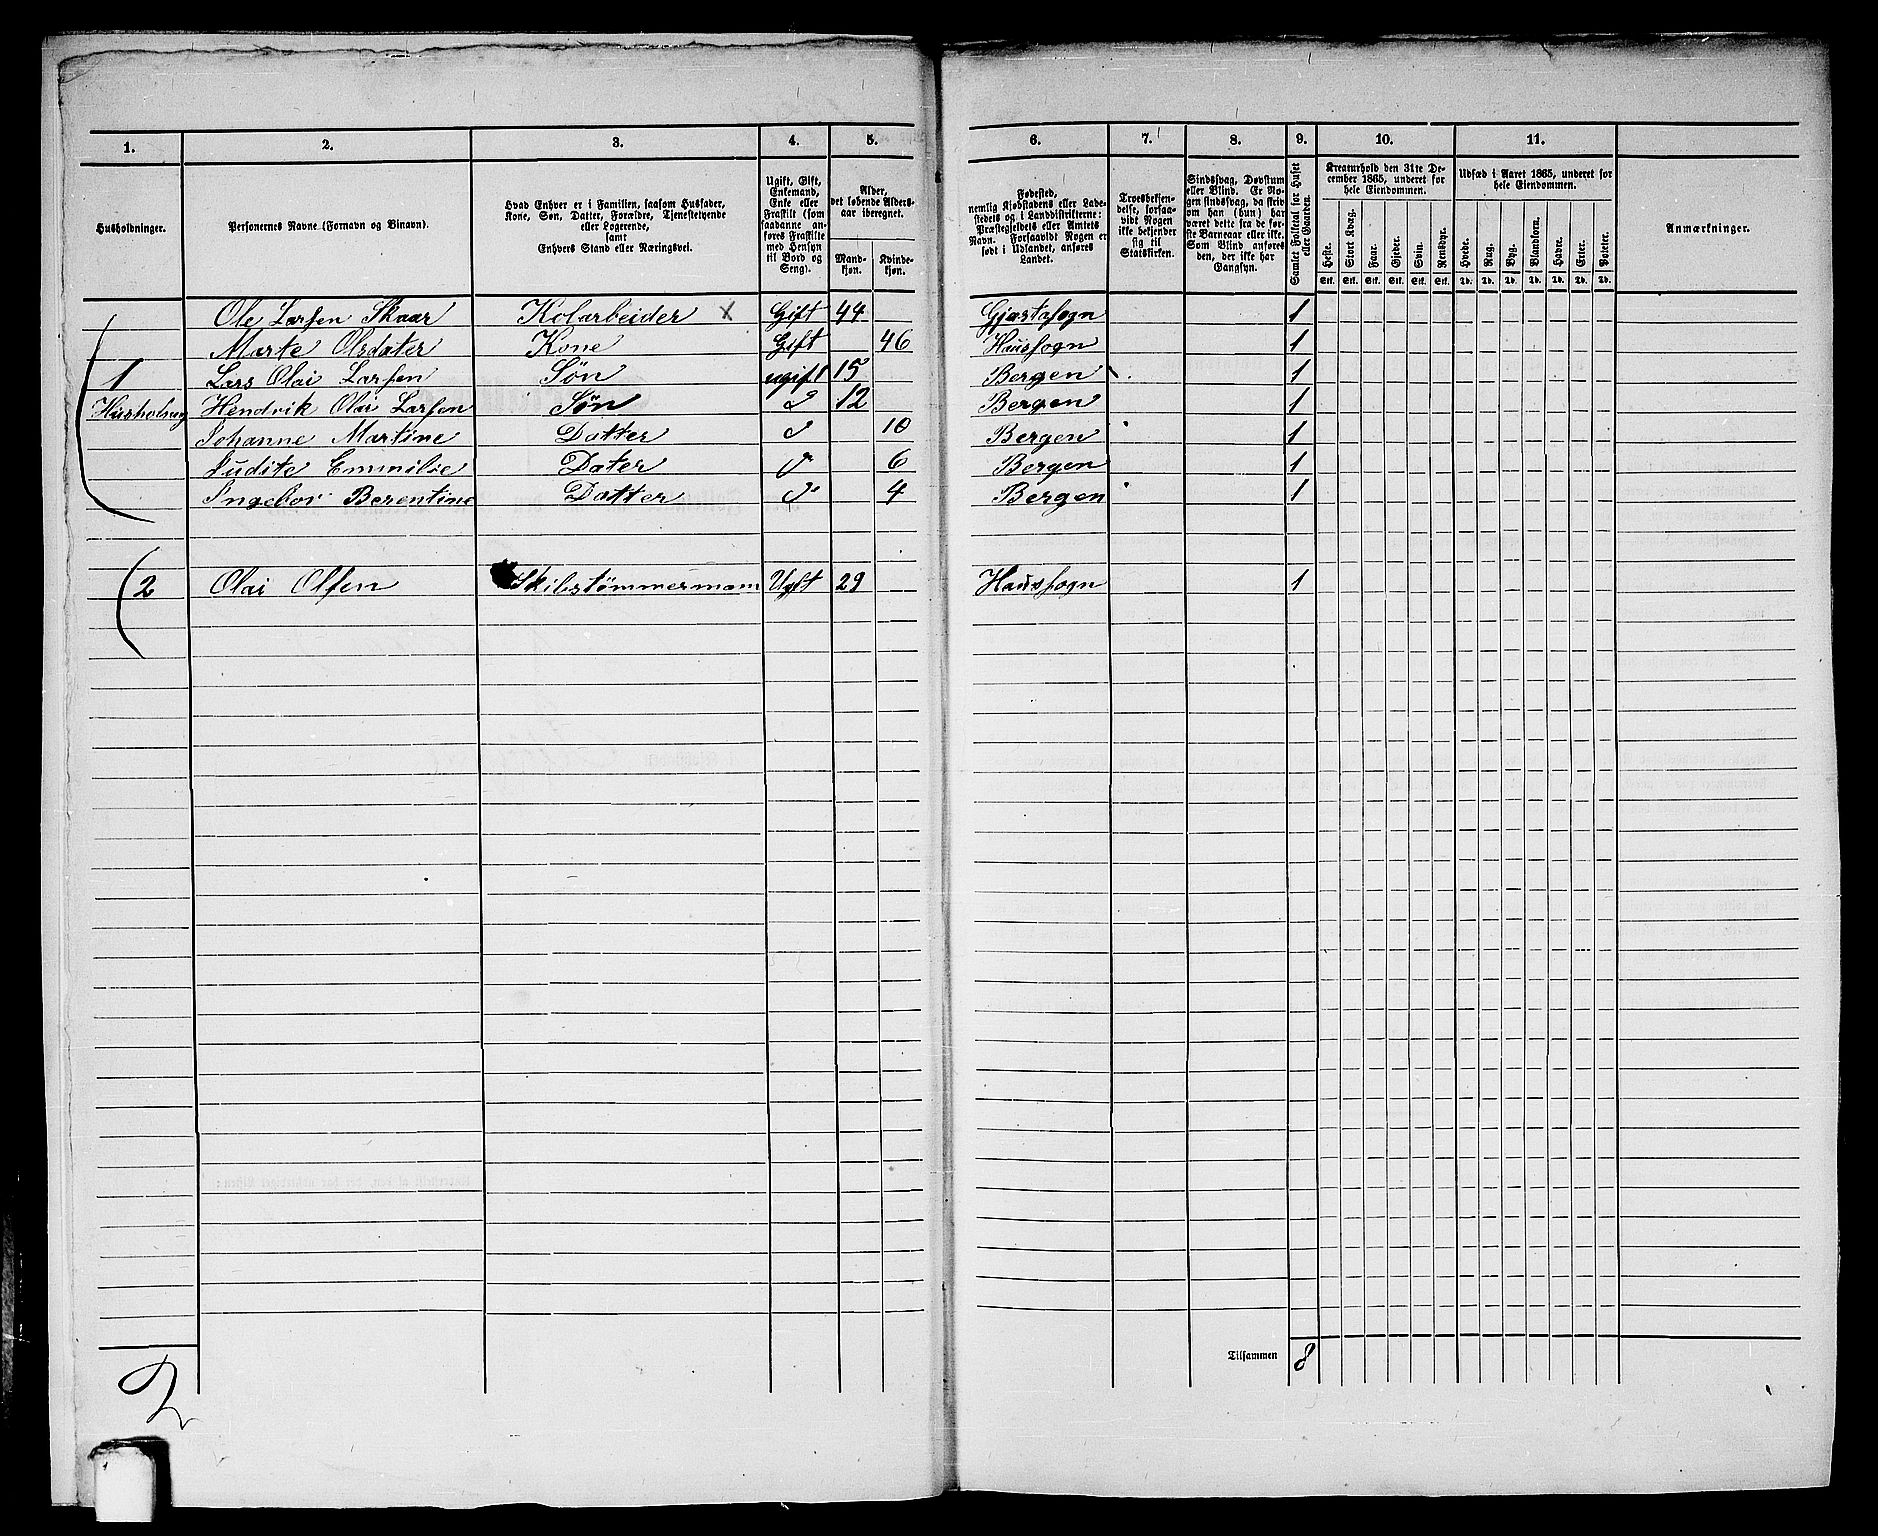 1. 2. 3. 4. 5. 6. 7. 8. 9. 10. 11.
Husholdninger.
Personernes Navne (Fornavn og Binavn).
Hvad Enhver er i Familien, saasom Husfader,
Kone, Søn, Datter, Forældre, Tjenestetyende
eller Logerende,
samt
Enhvers Stand eller Næringsvei.
Ugift, Gift,
Enkemand,
Enke eller
Fraskilt (som
saadanne an-
føres Fraskilte
med Hensyn
til Bord og
Seng).
Alder,
det løbende Alders-
aar iberegnet.
Mand-
kjøn.
Kvinde-
kjøn.
Fødested,
nemlig Kjøbstadens eller Lade-
stedets og i Landdistrikterne:
Præstegjeldets eller Amtets
Navn. Forsaavidt Nogen er
født i Udlandet, anføres
Landet.
Troesbekjen-
delse, forsaa-
vidt Nogen
ikke bekjender
sig til
Statskirken.
Sindssvag, Døvstum
eller Blind. Er No-
gen sindssvag, da skriv
om han (hun) har
været dette fra de før-
ste Barneaar eller ikke.
Som Blind anføres
den, der ikke har
Gangsyn.
Samlet Folketal for Huset
eller Gaarden.
Kreaturhold den 31te De-
cember 1865, underet for
hele Eiendommen.
Heste. Stort Kvæg. Faar. Gjeder. Svin. Rensdyr.
Stk. Stk. Stk. Stk. Stk. Stk.
Udsæd i Aaret 1865, underet for
hele Eiendommen.
Hvede. Rug. Byg. Blandkorn. Havre. Erter. Poteter.
Td. Td. Td. Td. Td. Td. Td.
Anmærkninger.
Ole Larsen Skaar Kolarbeider x Gift 44 1
Marte Olsdater Kone Gift 46 Haussogn 1
1 Lars Olai Larsen Søn ugift 15 Bergen 1
Hendrik Olai Larsen Søn 12 Bergen 1
Johanne Martine Datter 10 Bergen 1
Judite Emmilie Dater 6 Bergen 1
Ingebor Berentine Datter 4 Bergen 1
2 Olai Olsen Skibstømmermam Ugft 29 Haussogn 1
Tilsammen 8
2